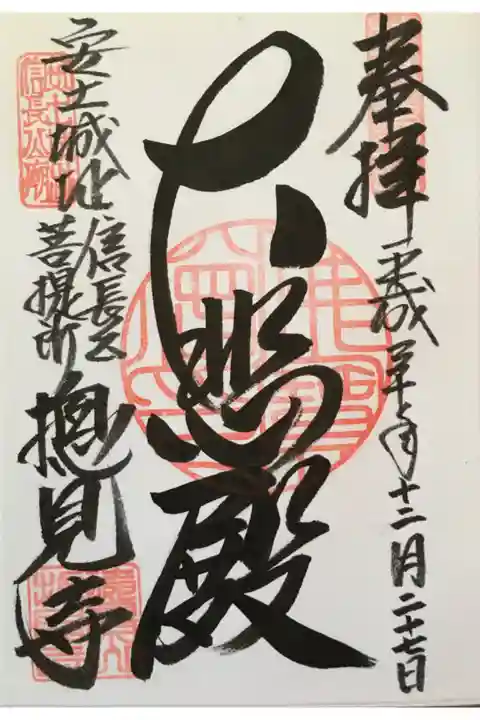 奉拝
平成 年十二月二十七日
大悲殿
安土城址
信長公
菩提所
摠見寺
信長公廟